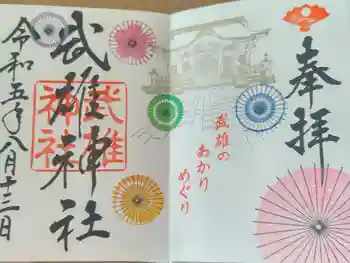 奉拝
武雄の
あかり
めぐり
武雄神社
武雄
神社
令和五年八月十三日